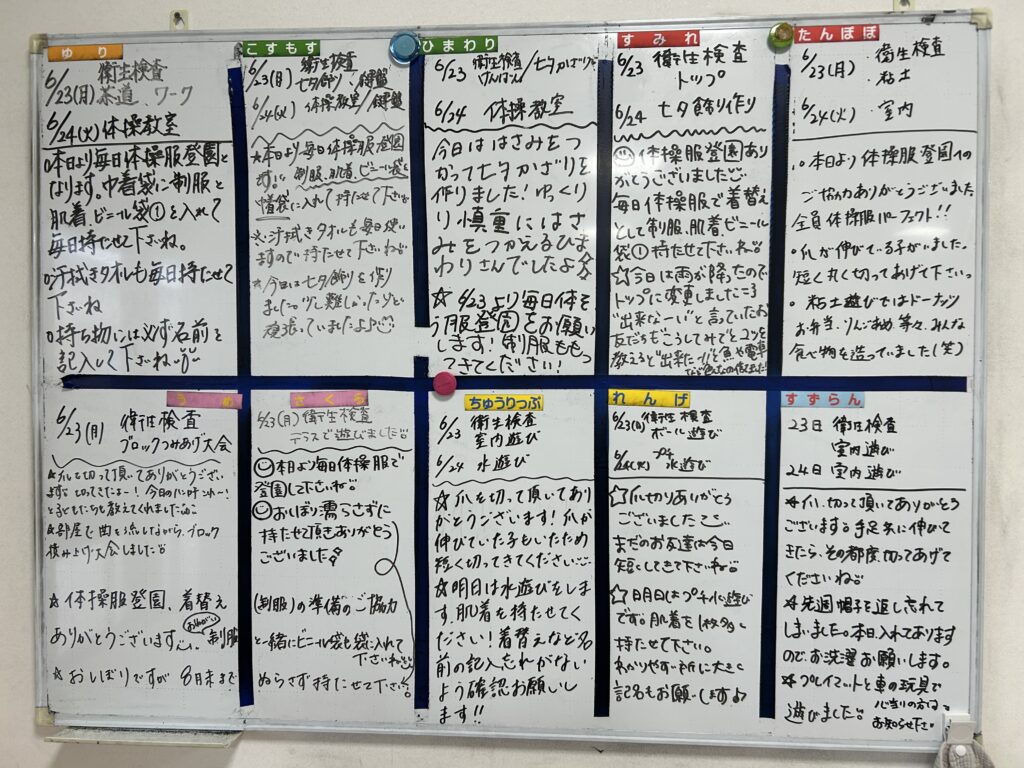 ゆり
6/23(月) 衛生検査
茶道、ワーク
6/24(火) 体操教室
○本日より毎日体操服登園と
なります。巾着袋に制服と
肌着、ビニール袋①を入れて
毎日持たせて下さいね。
○汗拭きタオルも毎日持たせて
下さいね
○持ち物には必ず名前を
記入して下さいね
こすもす
6/23(月) 衛生検査
七夕飾り/鍵盤
6/24(火) 体操教室/鍵盤
★本日より毎日体操服登園
です!! 制服、肌着、ビニール袋を
巾着袋に入れて持たせて下さい
☆汗拭きタオルも毎日使い
ますので持たせて下さいね
★今日は七夕飾りを作り
ました。少し難しい
頑張っていましたよ♪
ひまわり
6/23 衛生検査/七夕かざり
けんばん
6/24 体操教室
今日ははさみをつ
かって七夕かざりを
作りました!ゆっくり
慎重にはさ
みをつかえるひま
わりさんでしたよ
★6/23より毎日体そ
う服登園をお願い
します!制服ももっ
てきてください!
すみれ
6/23 衛生検査
トップ
6/24 七夕飾り作り
体操服登園あり
がとうございました
毎日体操服で着替え
として制服、肌着、ビニール
袋①持たせて下さいね
☆今日は雨が降ったので
トップに変更しました
"出来なーい"と言っていたお
友だちも"こうしてみて"とコツを
教えると"出来たー!"と魚や電車
たんぽぽ
6/23(月) ・衛生検査
・粘土
6/24(火) ・室内
○本日より体操服登園への
ご協力ありがとうございました
全員体操服パーフェクト!!
○爪が伸びている子がいました。
短く丸く切ってあげて下さいっ
○粘土遊びではドーナッツ
お弁当、りんごあめ、等々、みんな
食べ物を造っていました(笑)
うめ
6/23(月) 衛生検査
ブロックつみあげ大会
☆爪を切って頂いてありがとうござい
ます
と子どもたちも教えてくれました
☆部屋で曲を流しながら、ブロック
積み上げ大会しました
☆体操服登園、着替え
ありがとうございます
制服
☆おしぼりですが 8月末まで
さくら
6/23(月) 衛生検査
テラスで遊びました
本日より毎日体操服で
登園して下さいね
おしぼり濡らさずに
持たせて頂きありがとう
ございました
(制服)の準備のご協力
と一緒にビニール袋も袋に入れて
下さいね
ぬらさず持たせて下さい
ちゅうりっぷ
6/23 衛生検査
室内遊び
6/24 水遊び
☆爪を切って頂いてあり
がとうございます!爪が
伸びていた子もいたため
短く切ってきてください
☆明日は水遊びをしま
す。肌着を持たせてく
ださい!着替えなど名
前の記入忘れがない
よう確認お願いし
ます!!
れんげ
6/23(月) 衛生検査
ボール遊び
6/24(火) プチ
水遊び
☆爪切りありがとう
ございました
まだのお友達は今日
短くしてきて下さいね
☆明日はプチ水遊び
です。肌着を1枚多く
持たせて下さい。
わかりやすい所に大きく
記名もお願いします♪
すずらん
23日 衛生検査
室内遊び
24日 室内遊び
☆爪、切って頂いてありがとう
ございます。手足共に伸びて
きたら、その都度、切ってあげて
くださいね
☆先週帽子を返し忘れて
しまいました。本日、入れてあります
ので、お洗濯お願いします。
☆プレイマットと車の玩具で
遊びました
心当りの方は
お知らせ下さい